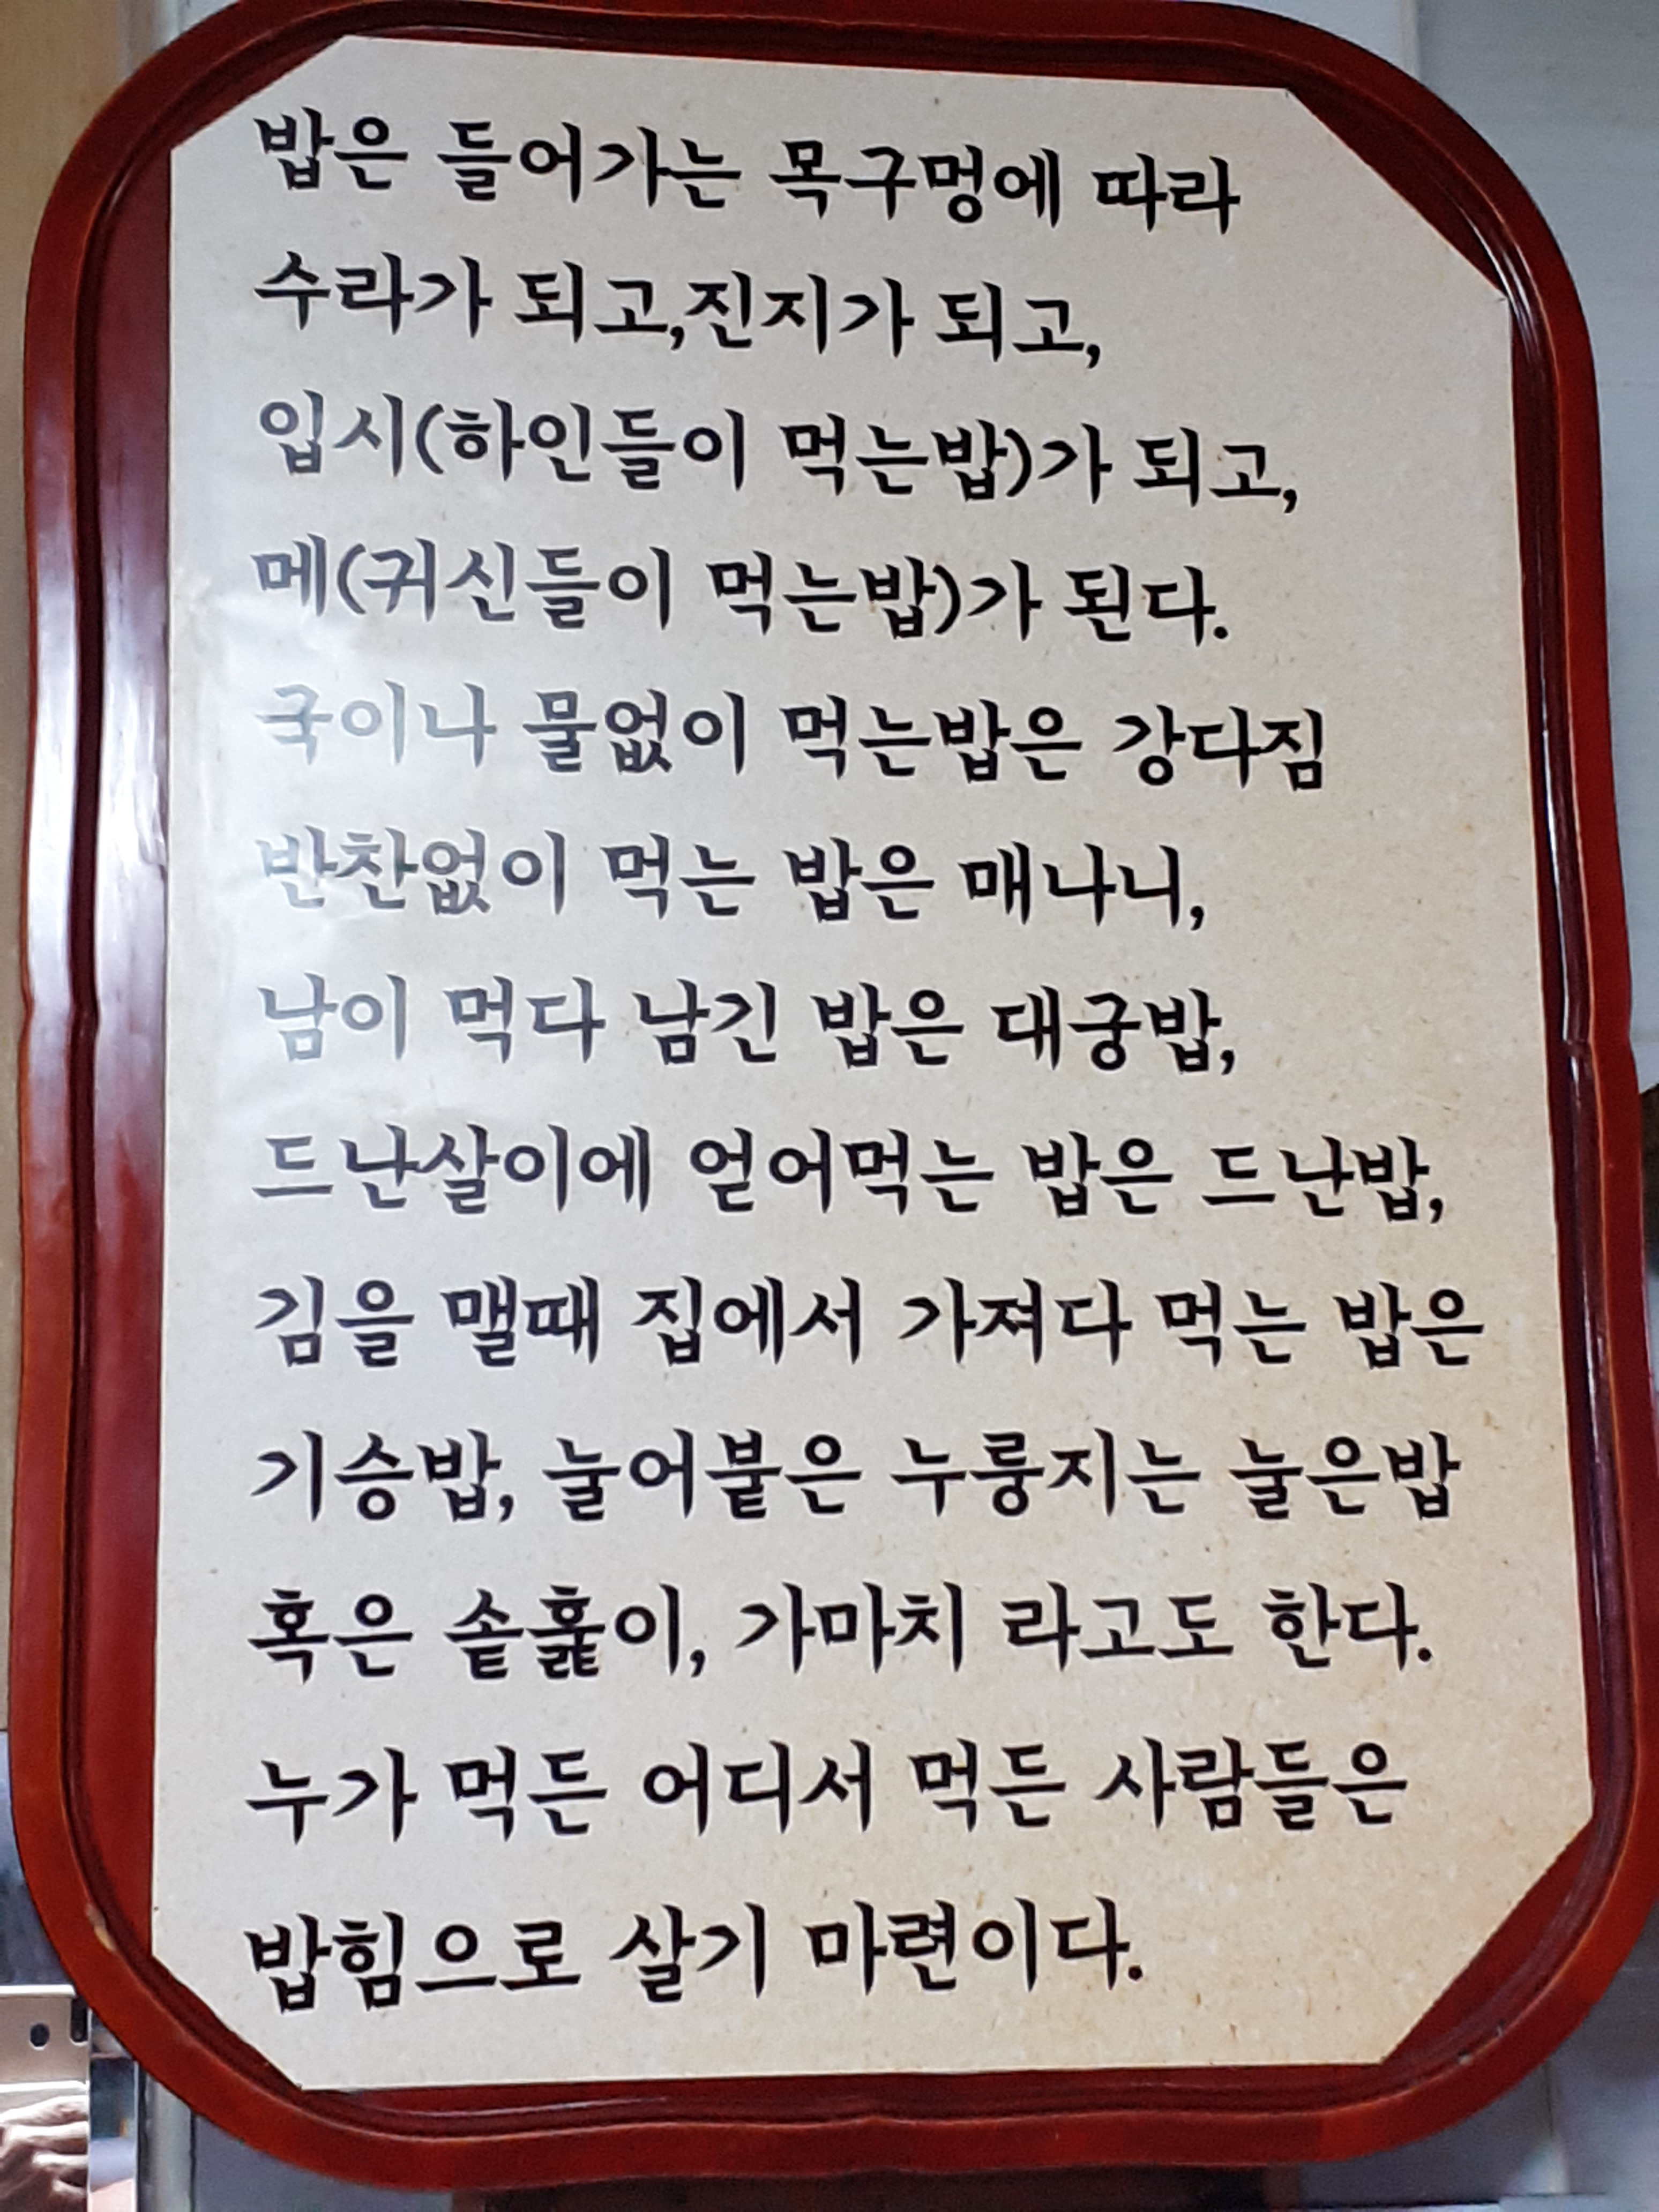 밥은 들어가는 목구멍에 따라
수라가 되고,진지가 되고,
입시(하인들이 먹는밥)가 되고,
메(귀신들이 먹는밥)가 된다.
국이나 물없이 먹는밥은 강다짐
반찬없이 먹는 밥은 매나니,
남이 먹다 남긴 밥은 대궁밥,
드난살이에 얻어먹는 밥은 드난밥,
김을 맬때 집에서 가져다 먹는 밥은
기승밥, 눌어붙은 누룽지는 눌은밥
혹은 솥훑이, 가마치 라고도 한다.
누가 먹든 어디서 먹든 사람들은
밥힘으로 살기 마련이다.